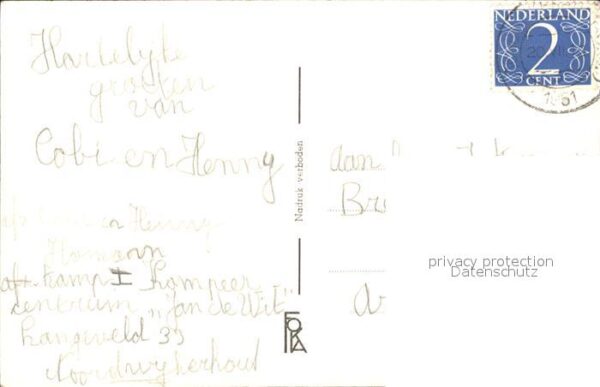 Hartelyke
groeten
van
Cobi en Henny
en Henny
Homann
kamp I Kampeer
centrum „Jan de Wit"
Langeveld 33
Noordwykerhout
Nadruk verboden
FOKA
NEDERLAND
2
CENT
1951
aan
Br
privacy protection
Datenschutz